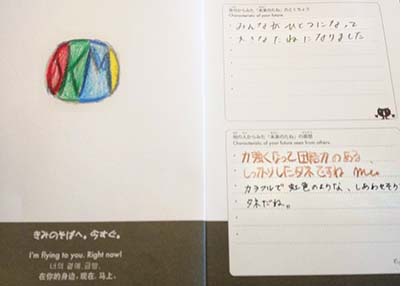 きみのそばへ。今すぐ。
I'm flying to you. Right now!
너의 곁에. 금방.
在你的身边。现在。马上。
自分からみた「未来のたね」のとくちょう
Characteristic of your future
みんながひとつになって
大きなたねになりました
他の人からみた「未来のたね」の感想
Characteristic of your future seen from others.
力強くなって団結力のある、
しっかりしたタネですね
カラフルで虹色のような、しあわせそう
タネだね。